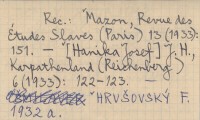 Rec.: Mazon, Revue des
Études Slaves (Paris) 13 (1933):
151. — [Hanika Josef] J. H.,
Karpathenland (Reichenberg)
6 (1933): 122-123.
HRUŠOVSKÝ F.
1932 a.